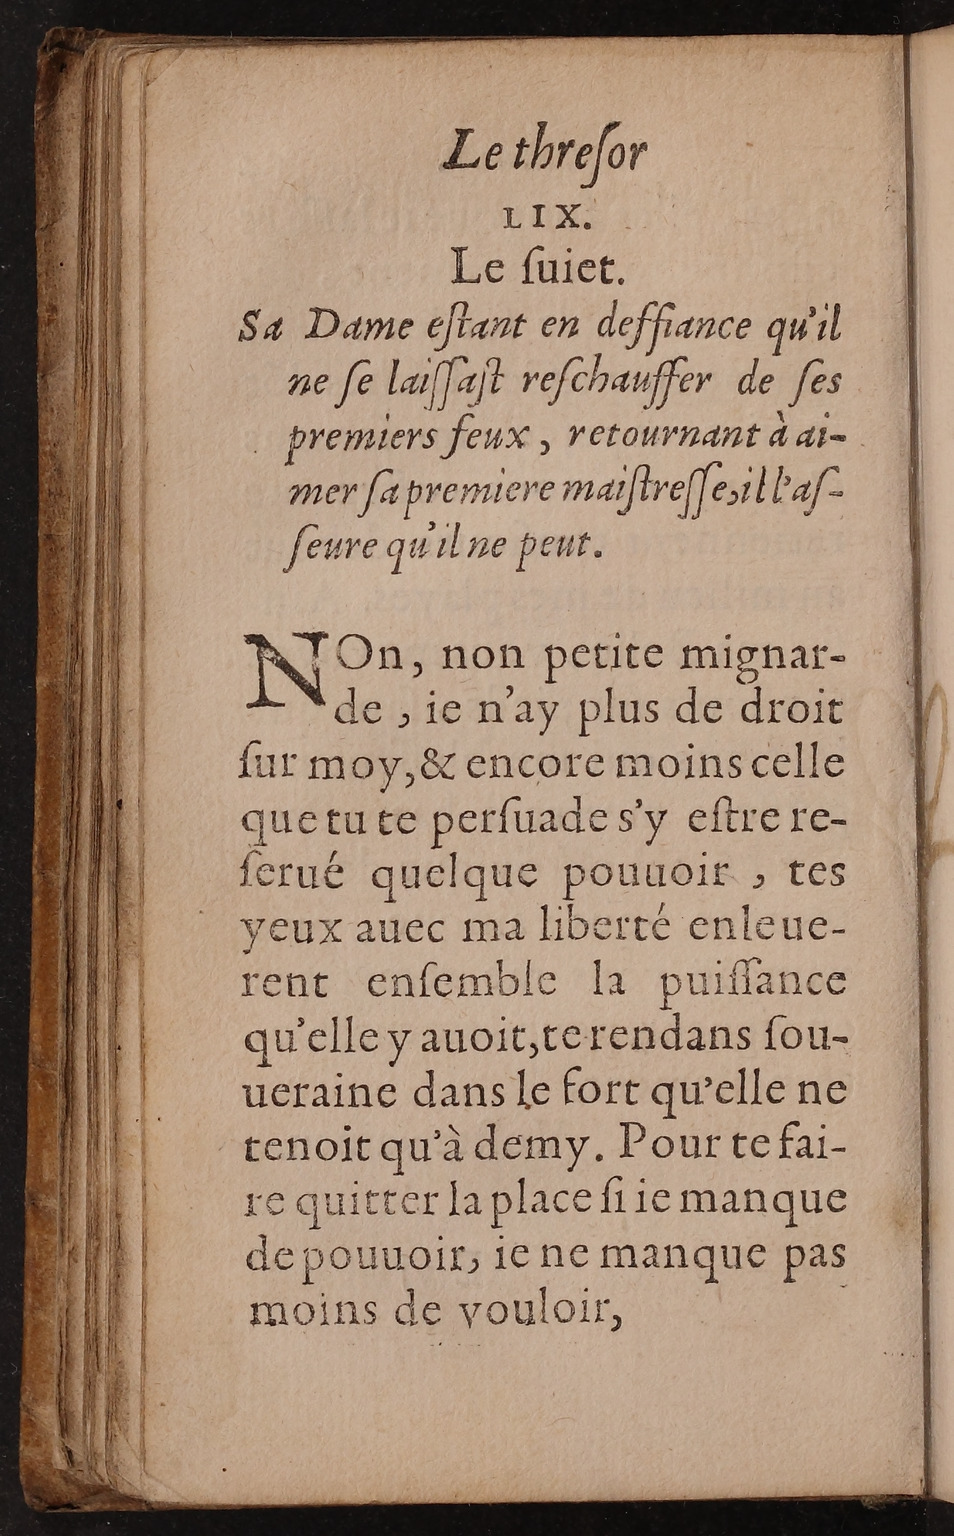 Le threſor
LIX.
Le ſuiet.
Sa Dame eſtant en deffiance qu'il
ne ſe laiſſaſt reſchauffer de ſes
premiers feux , retournant à ai-
mer ſa premiere maiſtreſſe,il l'aſ-
ſeure qu'il ne peut.
NOn, non petite mignar-
de , ie n'ay plus de droit
ſur moy,& encore moins celle
que tu te perſuade s'y eſtre re-
ſerué quelque pouuoir , tes
yeux auec ma liberté enleue-
rent enſemble la puiſſance
qu'elle y auoit,te rendans ſou-
ueraine dans le fort qu'elle ne
tenoit qu'à demy. Pour te fai-
re quitter la place ſi ie manque
de pouuoir, ie ne manque pas
moins de vouloir,